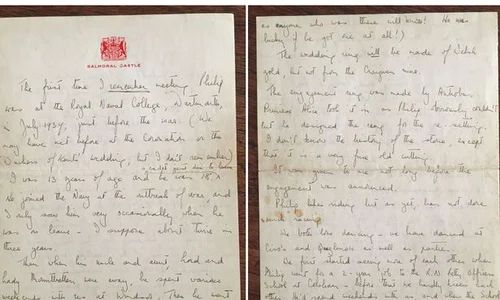 BALMORAL CASTLE
The first time I remember meeting Philip
was at the Royal Naval College, Dartmouth,
in July 1939, just before the war. (We
may have met before at the Coronation or the
Duchess of Kent's wedding, but I don't remember)
I was 13 years of age and he was 18
He joined the Navy at the outbreak of war, and
I only saw him very occasionally when he
was on leave - I suppose about twice in
three years.
Then when his uncle and aunt, Lord and
Lady Mountbatten were away, he spent various
weekends with us at Windsor. Then he went
as anyone who was there will know! He was
lucky to be got me at all!)
The wedding ring will be made of Welsh
gold, but not from the Craigwen mine.
The engagement ring was made by Antrobus.
Princess Alice took it in as Philip couldn't
but he designed the ring for the re-setting.
I don't know the history of the stone, except
that it is a very fine old cutting.
It was given to me not long before the
engagement was announced.
Philip likes riding but as yet, has not done
racing.
We both love dancing - we have danced at
Ciro's and Quaglino's as well as at parties.
We first started seeing more of each other when
Philip went for a 2-year job to the R.N. Petty Officers
School at Corsham - before that we hardly knew each
other. He'd spend weekends with us, and when the